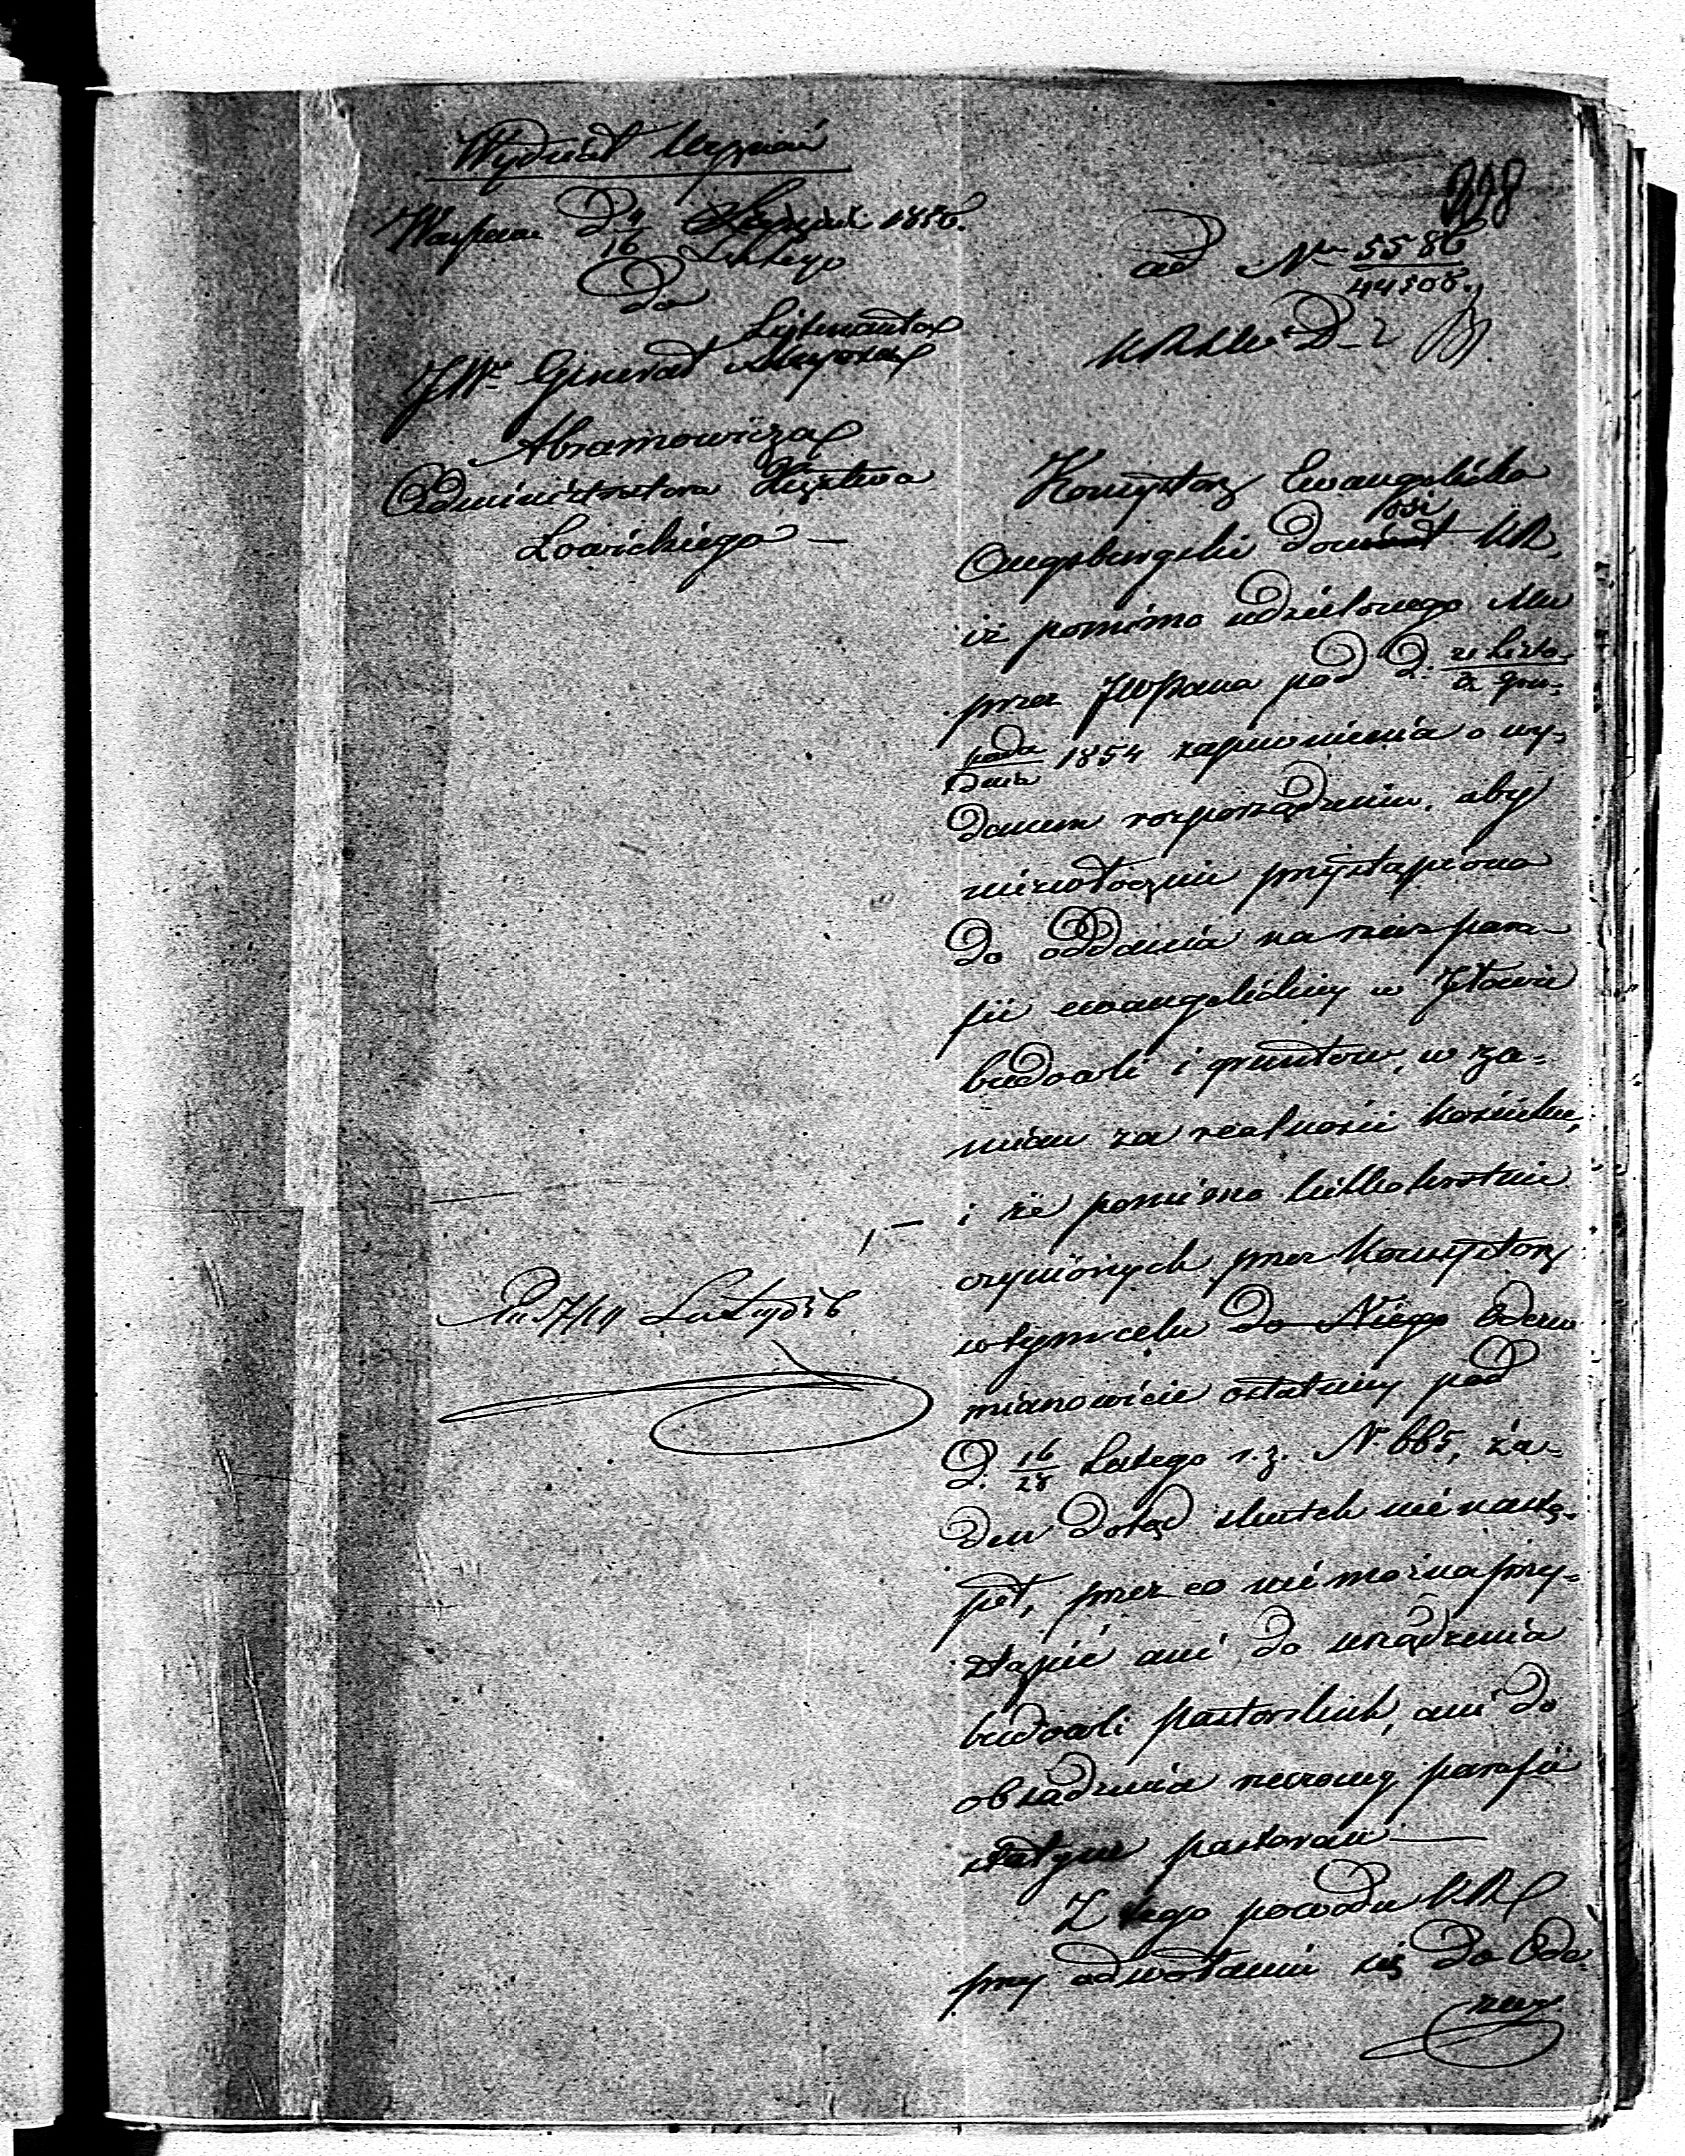 Wydział Wyznań
Warszawa D 4/16 Lutego 1856.
Do
Lejtnanta
JWo Generał Majora
Abramowicza
Administratora Księstwa
Łowickiego —
Pn 7/19 Lutego 56
328
ad Nr 5586/44508.
KRSW D 2
Konsystorz Ewangelicko
Augsburgski donosi KR,
iż pomimo udzielonego Mu
przez JWPana pod D. 21 Listo-/3 Gru-
pada/dnia 1854 zapewnienia o wy-
danem rozporządzeniu, aby
niezwłocznie przystąpiono
do oddania na rzecz para-
fii ewangelickiej w Iłowie
budowli i gruntów, w za-
mian za realności kościelne,
i że pomimo kilkakrotnie
czynionych przez Konsystorz
w tym celu do Niego odezw
mianowicie ostatniej pod
D. 16/28 Lutego r. z. N. 665, ża-
den dotąd skutek nie nastą-
pił, przez co nie można przy-
stąpić ani do urządzenia
budowli pastorskich, ani do
obsadzenia rzeczonej parafii
stałym pastorem —
Z tego powodu KR
przy odwołaniu się do Ode-
zwy